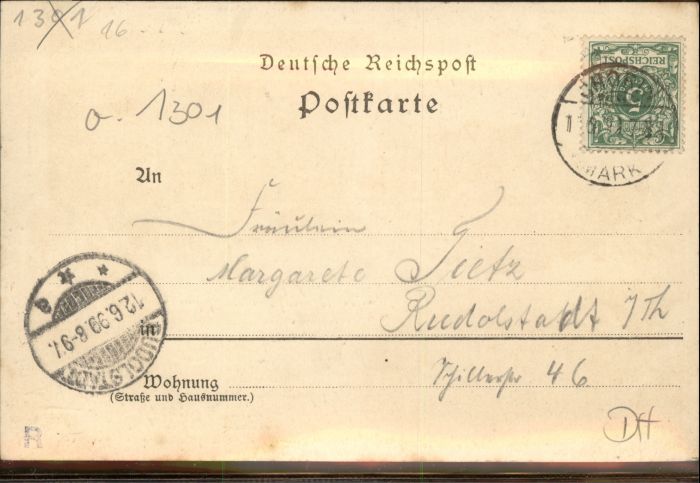 1301
16
Deutsche Reichspost
Postkarte
a. 1301
REICHSPOST
5
MARK
An
Fräulein
Margarete Tietz
in
Rudolstadt i/Th
RUDOLSTADT
12.6.99.8-9V.
* * a
Wohnung
Schillerstr 46
(Straße und Hausnummer.)
DH
R